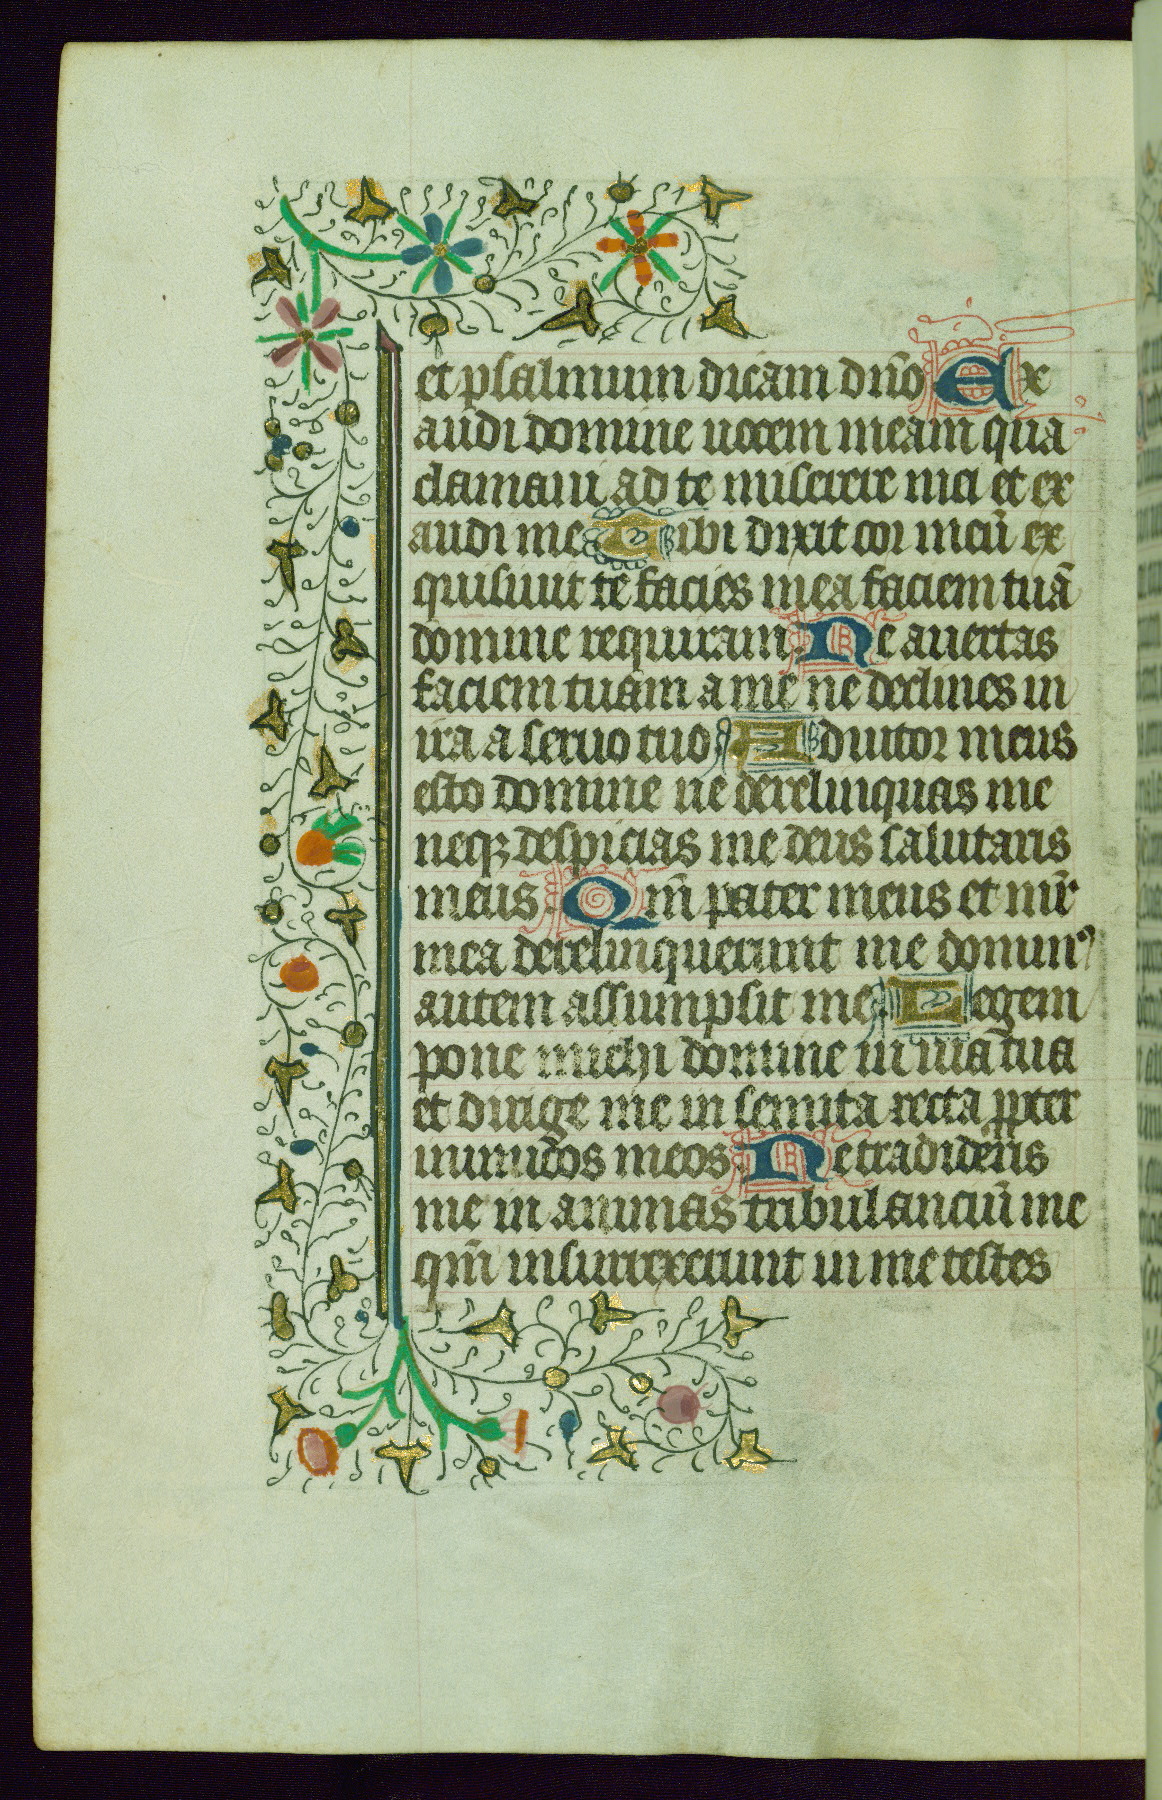 et psalmum dicam dño Ex
audi domine uocem meam qua
clamaui ad te miserere mei et ex
audi me Tibi dixit cor meū ex
quisiuit te facies mea faciem tuā
domine requiram. Ne auertas
faciem tuam a me ne declines in
ira a seruo tuo Adiutor meus
esto domine ne derelinquas me
neqꝫ despicias me deus salutaris
meus. Qm̄ pater meus et mr̄
mea derelinquerunt me dominꝰ
autem assumpsit me. Legem
pone michi domine in uia tua
et dirige me in semita recta ꝓpter
inimicos meos. Ne tradideris
me in animas tribulanciū me
qm̄ insurrexerunt in me testes